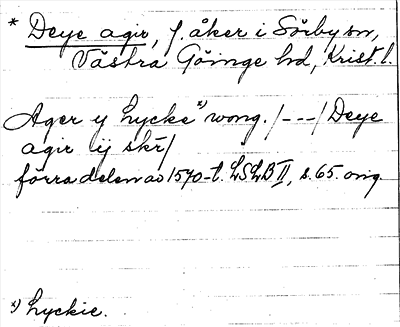 * Deye agir, f. åker i Sörby sn,
Västra Göinge hd, Krist. l.
Ager y Lycke x) wong. /---/ Deye
agir ij skr/
förra delen av 1570-t. LSLB II, s. 65. omg.
x) Lyckie.